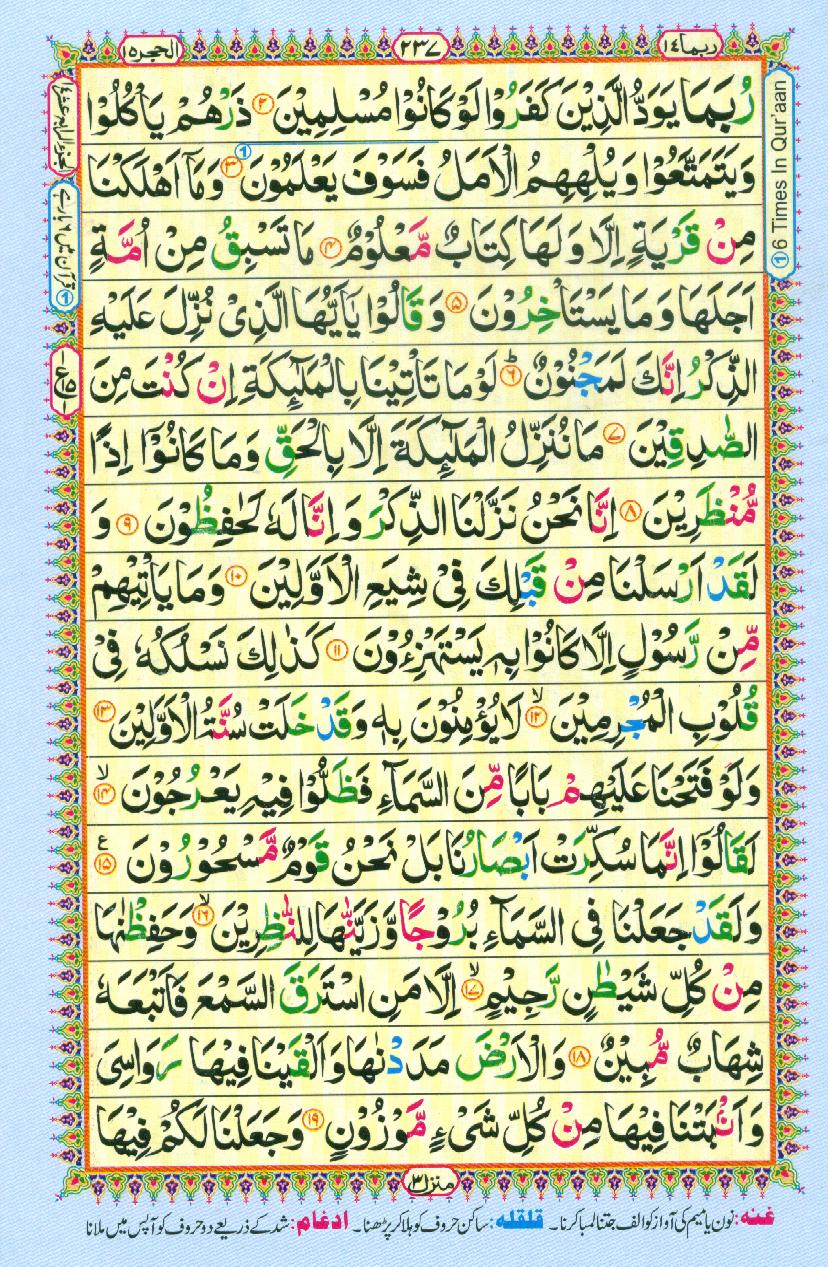 ربما ١٤
٢٣٧
الحجر ١٥
رُبَمَا يَوَدُّ الَّذِيْنَ كَفَرُوْا لَوْ كَانُوْا مُسْلِمِيْنَ ﴿۲﴾ ذَرْهُمْ يَاْكُلُوْا
وَيَتَمَتَّعُوْا وَيُلْهِهِمُ الْاَمَلُ فَسَوْفَ يَعْلَمُوْنَ ﴿۳﴾ وَمَاۤ اَهْلَكْنَا
مِنْ قَرْيَةٍ اِلَّا وَلَهَا كِتَابٌ مَّعْلُوْمٌ ﴿۴﴾ مَا تَسْبِقُ مِنْ اُمَّةٍ
اَجَلَهَا وَمَا يَسْتَاْخِرُوْنَ ﴿۵﴾ وَقَالُوْا يٰۤاَيُّهَا الَّذِيْ نُزِّلَ عَلَيْهِ
الذِّكْرُ اِنَّكَ لَمَجْنُوْنٌ ﴿۶﴾ؕ لَوْ مَا تَاْتِيْنَا بِالْمَلٰٓئِكَةِ اِنْ كُنْتَ مِنَ
الصّٰدِقِيْنَ ﴿۷﴾ مَا نُنَزِّلُ الْمَلٰٓئِكَةَ اِلَّا بِالْحَقِّ وَمَا كَانُوْۤا اِذًا
مُّنْظَرِيْنَ ﴿۸﴾ اِنَّا نَحْنُ نَزَّلْنَا الذِّكْرَ وَاِنَّا لَهٗ لَحٰفِظُوْنَ ﴿۹﴾ وَ
لَقَدْ اَرْسَلْنَا مِنْ قَبْلِكَ فِيْ شِيَعِ الْاَوَّلِيْنَ ﴿۱۰﴾ وَمَا يَاْتِيْهِمْ
مِّنْ رَّسُوْلٍ اِلَّا كَانُوْا بِهٖ يَسْتَهْزِءُوْنَ ﴿۱۱﴾ كَذٰلِكَ نَسْلُكُهٗ فِيْ
قُلُوْبِ الْمُجْرِمِيْنَ ﴿۱۲﴾ۙ لَا يُؤْمِنُوْنَ بِهٖ وَقَدْ خَلَتْ سُنَّةُ الْاَوَّلِيْنَ ﴿۱۳﴾
وَلَوْ فَتَحْنَا عَلَيْهِمْ بَابًا مِّنَ السَّمَآءِ فَظَلُّوْا فِيْهِ يَعْرُجُوْنَ ﴿۱۴﴾ۙ
لَقَالُوْۤا اِنَّمَا سُكِّرَتْ اَبْصَارُنَا بَلْ نَحْنُ قَوْمٌ مَّسْحُوْرُوْنَ ﴿۱۵﴾ ع
وَلَقَدْ جَعَلْنَا فِي السَّمَآءِ بُرُوْجًا وَّزَيَّنّٰهَا لِلنّٰظِرِيْنَ ﴿۱۶﴾ۙ وَحَفِظْنٰهَا
مِنْ كُلِّ شَيْطٰنٍ رَّجِيْمٍ ﴿۱۷﴾ۙ اِلَّا مَنِ اسْتَرَقَ السَّمْعَ فَاَتْبَعَهٗ
شِهَابٌ مُّبِيْنٌ ﴿۱۸﴾ وَالْاَرْضَ مَدَدْنٰهَا وَاَلْقَيْنَا فِيْهَا رَوَاسِيَ
وَاَنْۢبَتْنَا فِيْهَا مِنْ كُلِّ شَيْءٍ مَّوْزُوْنٍ ﴿۱۹﴾ وَجَعَلْنَا لَكُمْ فِيْهَا
①6 Times In Qur'aan
① قرآن میں ۶ بار ہے
ع ۵
منزل ۳
غنہ: نون یا میم کی آواز کو الف جتنا لمبا کرنا۔ قلقلہ: ساکن حروف کو ہلا کر پڑھنا۔ ادغام: شد کے ذریعے دو حروف کو آپس میں ملانا